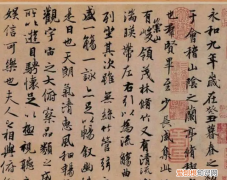 永和九年歲在癸丑暮春之
于會稽山陰之蘭亭脩稧
也群賢畢至少長咸集此
有崇山峻領茂林脩竹又有清流
湍暎帶左右引以為流觴曲
列坐其次雖無絲竹管弦
盛一觴一詠亦足以暢敘幽
是日也天朗氣清惠風和暢
觀宇宙之大俯察品類之
所以遊目騁懷足以極視聽
娛信可樂也夫人之相與俯